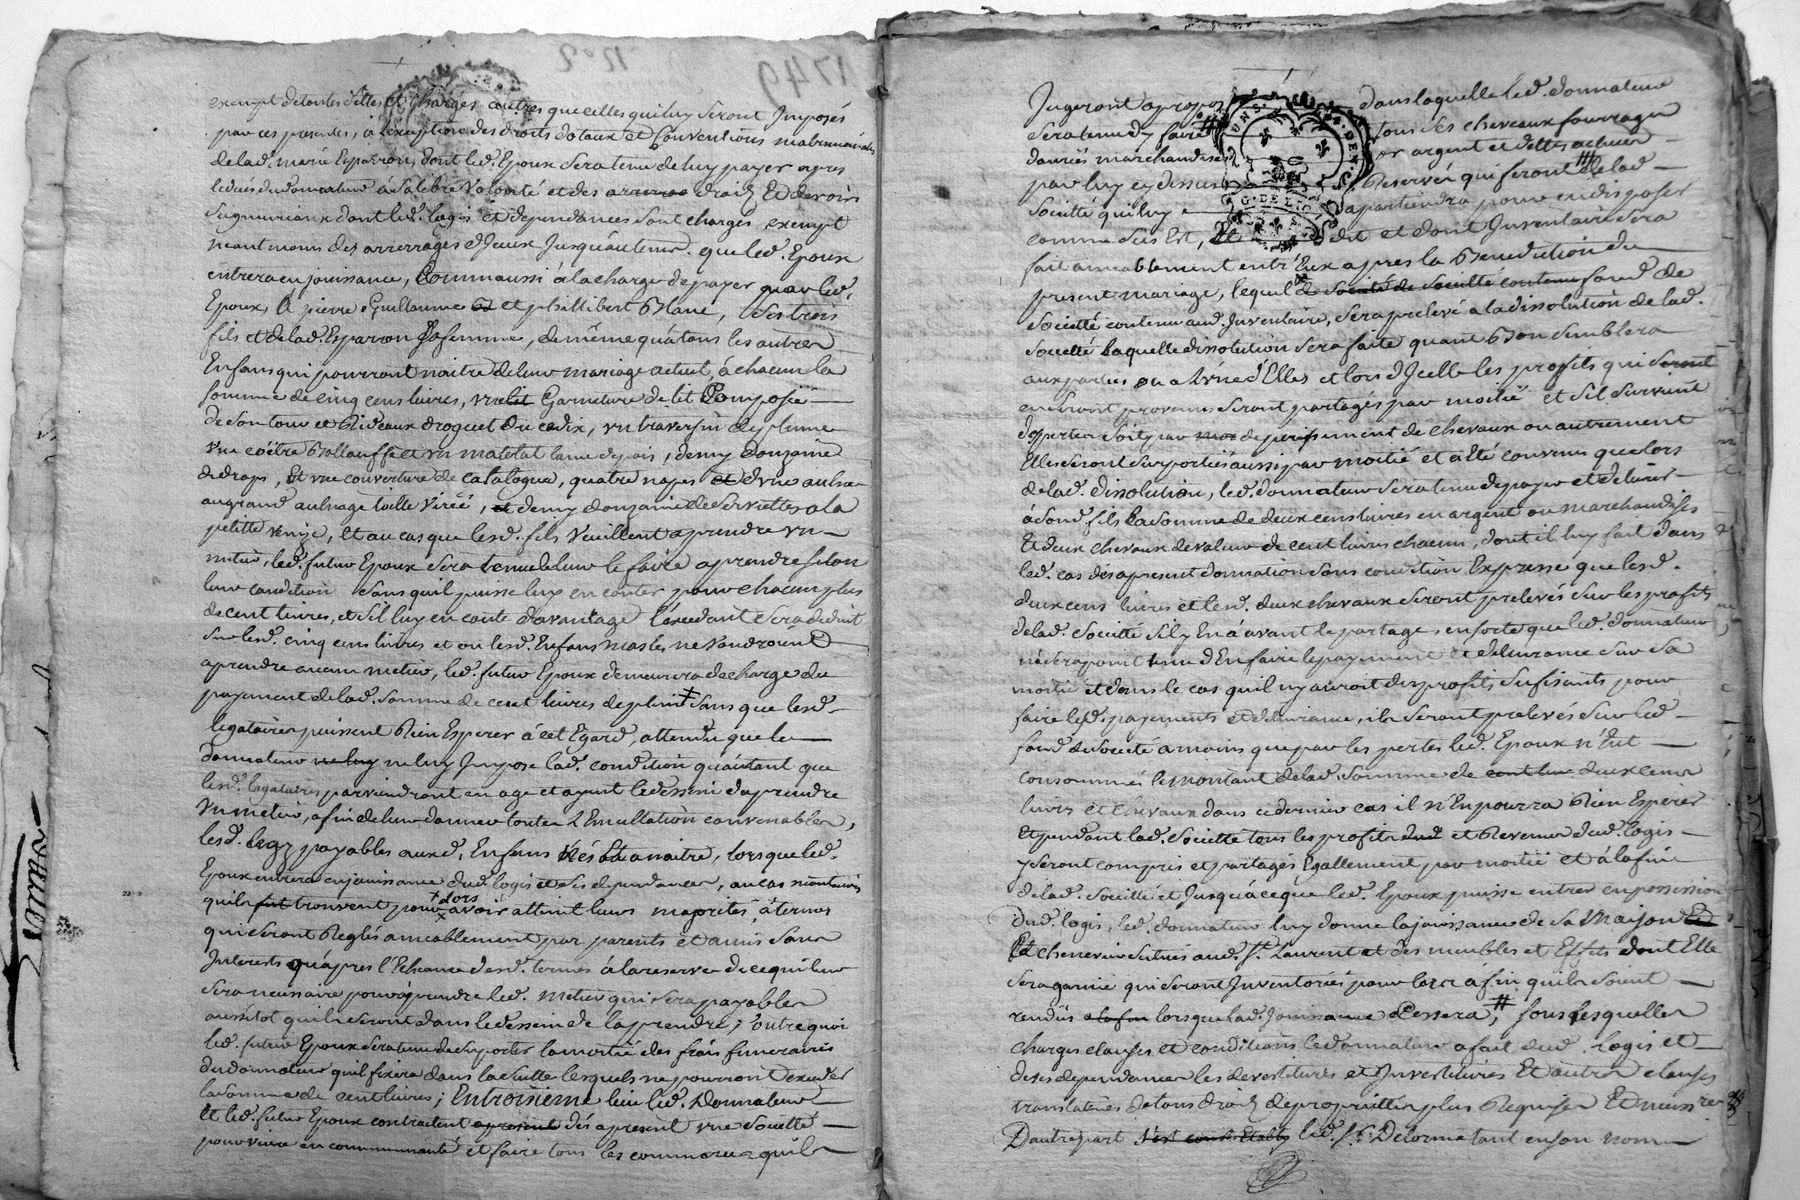 1749 n° 2
exempt de toutes dettes et charges autres que celles qui luy seront Imposés
par ces presentes, à l'exception des droits dotaux et Conventions matrimoniales
de lad. marie Esparron, dont led. Epoux sera tenu de luy payer apres
le deces du donnateur à sa libre volonté et des arrerage droits Et devoirs
Seigneuriaux dont led. logis et dependances sont chargés, exempt
neantmoins des arrerrages d'Jceux Jusqu'au temps que led. Epoux
entrera en jouissance, Comm'aussi à la charge de payer par led.
Epoux, à pierre, Guillaume et et philibert Blanc, ses trois
fils et de lad. Esparron sa femme, de même qu'à tous les autres
Enfans qui pourront naitre de leur mariage actuel, à chacun la
somme de cinq cens livres, un lit Garniture de lit Composée
de son tour et Rideaux droguet du cadix, un traversin de plume
une coëtre Ballouffe et un matelat laine depais, demy douzaine
de draps, Et une couverture de Catalogne, quatre napes et d'une aulne
au grand aulnage toille Virée, et demy douzaine de serviettes a la
petitte venise, Et au cas que lesd. fils veuillent aprendre un
metier, led. futur Epoux sera tenu de leur le faire aprendre selon
leur condition sans qu'il puisse leur en couter pour chacun plus
de cent livres, et s'il luy en coute davantage l'excedant sera deduit
sur lesd. cinq cens livres et ou lesd. Enfans masles ne voudroient
aprendre aucun metier, led. futur Epoux demeurera decharge du
payement de lad. somme de cent livres de plein sans que lesd.
legataires puissent Rien Esperer à cet Egard, attendu que le
donnateur ne luy ne luy Impose lad. condition qu'autant que
lesd. legataires parviendront en age et ayent le dessein d'aprendre
un metier, afin de leur donner toute l'Emullation convenable,
lesd. legs payables auxd. Enfans Nés Et a naitre, lorsque led.
Epoux entrera en jouissance dud. logis et ses dependances, au cas
qu'ils se trouvent pour lors avoir atteint leurs majorités, à termes
qui seront Reglés amcablement par parents et amis sans
Interests qu'apres l'Echeance desd. termes à la reserve de ce qui leur
sera necessaire pour aprendre led. metier qui sera payable
aussitot qu'ils seront dans le dessein de l'aprendre; outre quoi
led. futur Epoux sera tenu de suporter la moitié des frais funeraires
du donnateur qu'il fixera dans la suitte lesquels ne pourront exceder
la somme de cent livres; En troisieme lieu led. Donnateur
Et led. futur Epoux contractent apresent dés apresent une societté
pour vivre en communauté et faire tous les commerces qu'ils
Jugeront apropos dans laquelle led. donnateur
sera tenu d'y faire tous ses chevaux fourrages
danrées marchandises or argent et dettes
par luy cy dessus Reservés qui feront de lad.
societté qui luy apartiendra pour en disposer
comme sus Est, dit et dont Inventaire sera
fait amcablement entr'Eux apres la Benediction du
present mariage, lequel de Societté de societté contenu fond de
societté contenu aud. Inventaire, sera prelevé a la dissolution de lad.
societté laquelle dissolution sera faite quant Bon semblera
aux parties ou a l'une d'Elles et lors d'Jcelle les profits qui seront
en seront provenus seront partagés par moitié et s'il survient
des pertes soit par mor deperissement de chevaux ou autrement
Elles seront suportées aussi par moitié et a été convenu que lors
de lad. dissolution, led. donnateur sera tenu de payer et delivrer
à sond. fils la somme de deux cens livres en argent ou marchandises
Et deux chevaux de valeur de cent livres chacun, dont il luy fait dans
led. cas dés apresent donnation sous condition Expresse que lesd.
deux cens livres et lesd. deux chevaux seront prelevés sur les profits
de lad. societté s'il y En a avant le partage, en sorte que led. donnateur
ne sera point tenu d'En faire le payement et delivrance sur sa
moitié et dans le cas qu'il n'y auroit des profits sufisants pour
faire lesd. payements et delivrance, ils seront prelevés sur led.
fond de societé a moins que par les pertes led. Epoux n'Eut
consommés le montant de lad. somme de cent livres deux cens
livres et chevaux dans ce dernier cas il n'En pourra Rien Esperer
Et pendant lad. societté tous les profits dud et Revenus dud. logis
y seront compris et partagés, Egallement par moitié et à la fin
de lad. societté et Jusqu'a ce que led. Epoux puisse entrer en possession
dud. logis, led. donnateur luy donne la jouissance de sa maison
Et chenevier scitués aud. St. Laurent et des meubles et Effets dont Elle
sera garnie qui seront Inventoriés pour lors afin qu'ils soient
rendus a la fin lorsque lad. jouissance Cessera, sous lesquelles
charges clauses et conditions led. donnateur a fait dud. logis et
de ses dependances les devestitures et Investitures Et autres clauses
translatives de tous droits de proprietté les plus Requises Et necessres
D'autre part led. Sr. Delorme tant en son nom